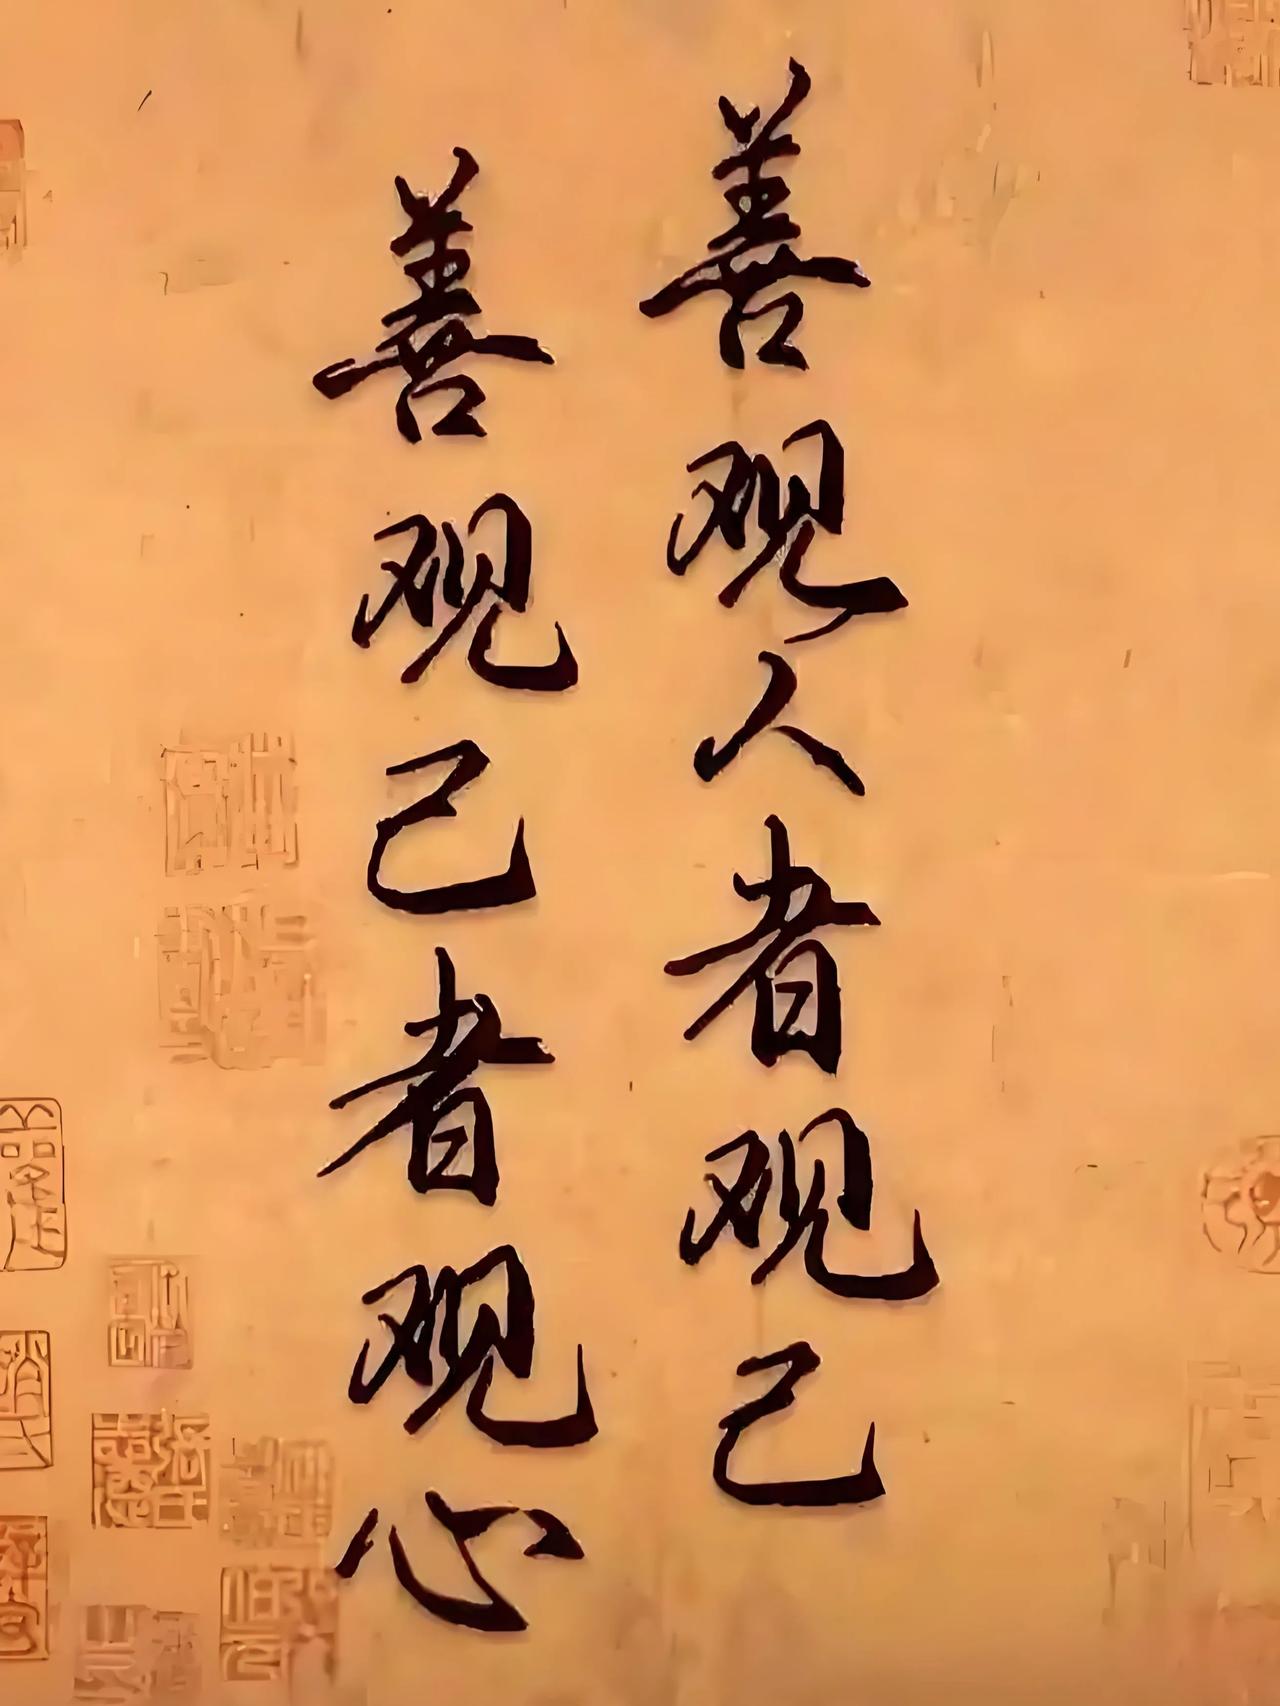 善观人者观己
善观己者观心